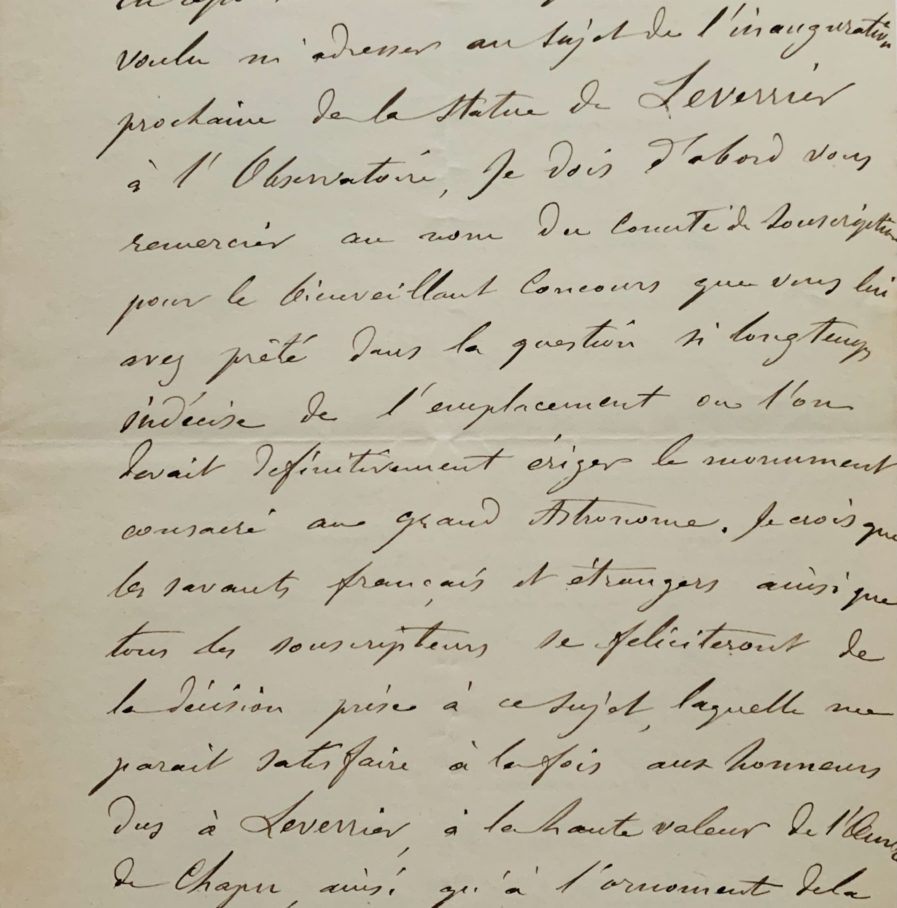 voulu m'adresser au sujet de l'inauguration
prochaine de la statue de Leverrier
à l'Observatoire, Je dois d'abord vous
remercier au nom du Comité de Souscription
pour le bienveillant Concours que vous lui
avez prêté dans la question si longtemps
indécise de l'emplacement ou l'on
devait définitivement ériger le monument
consacré au grand Astronome. Je crois que
les savants français et étrangers ainsi que
tous les souscripteurs se feliciteront de
la décision prise à ce sujet, laquelle me
parait satisfaire à la fois aux honneurs
dus à Leverrier, à la haute valeur de l'Œuvre
de Chapu, ainsi qu'à l'ornement de la